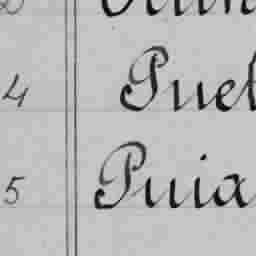 4 Puel
5 Puia